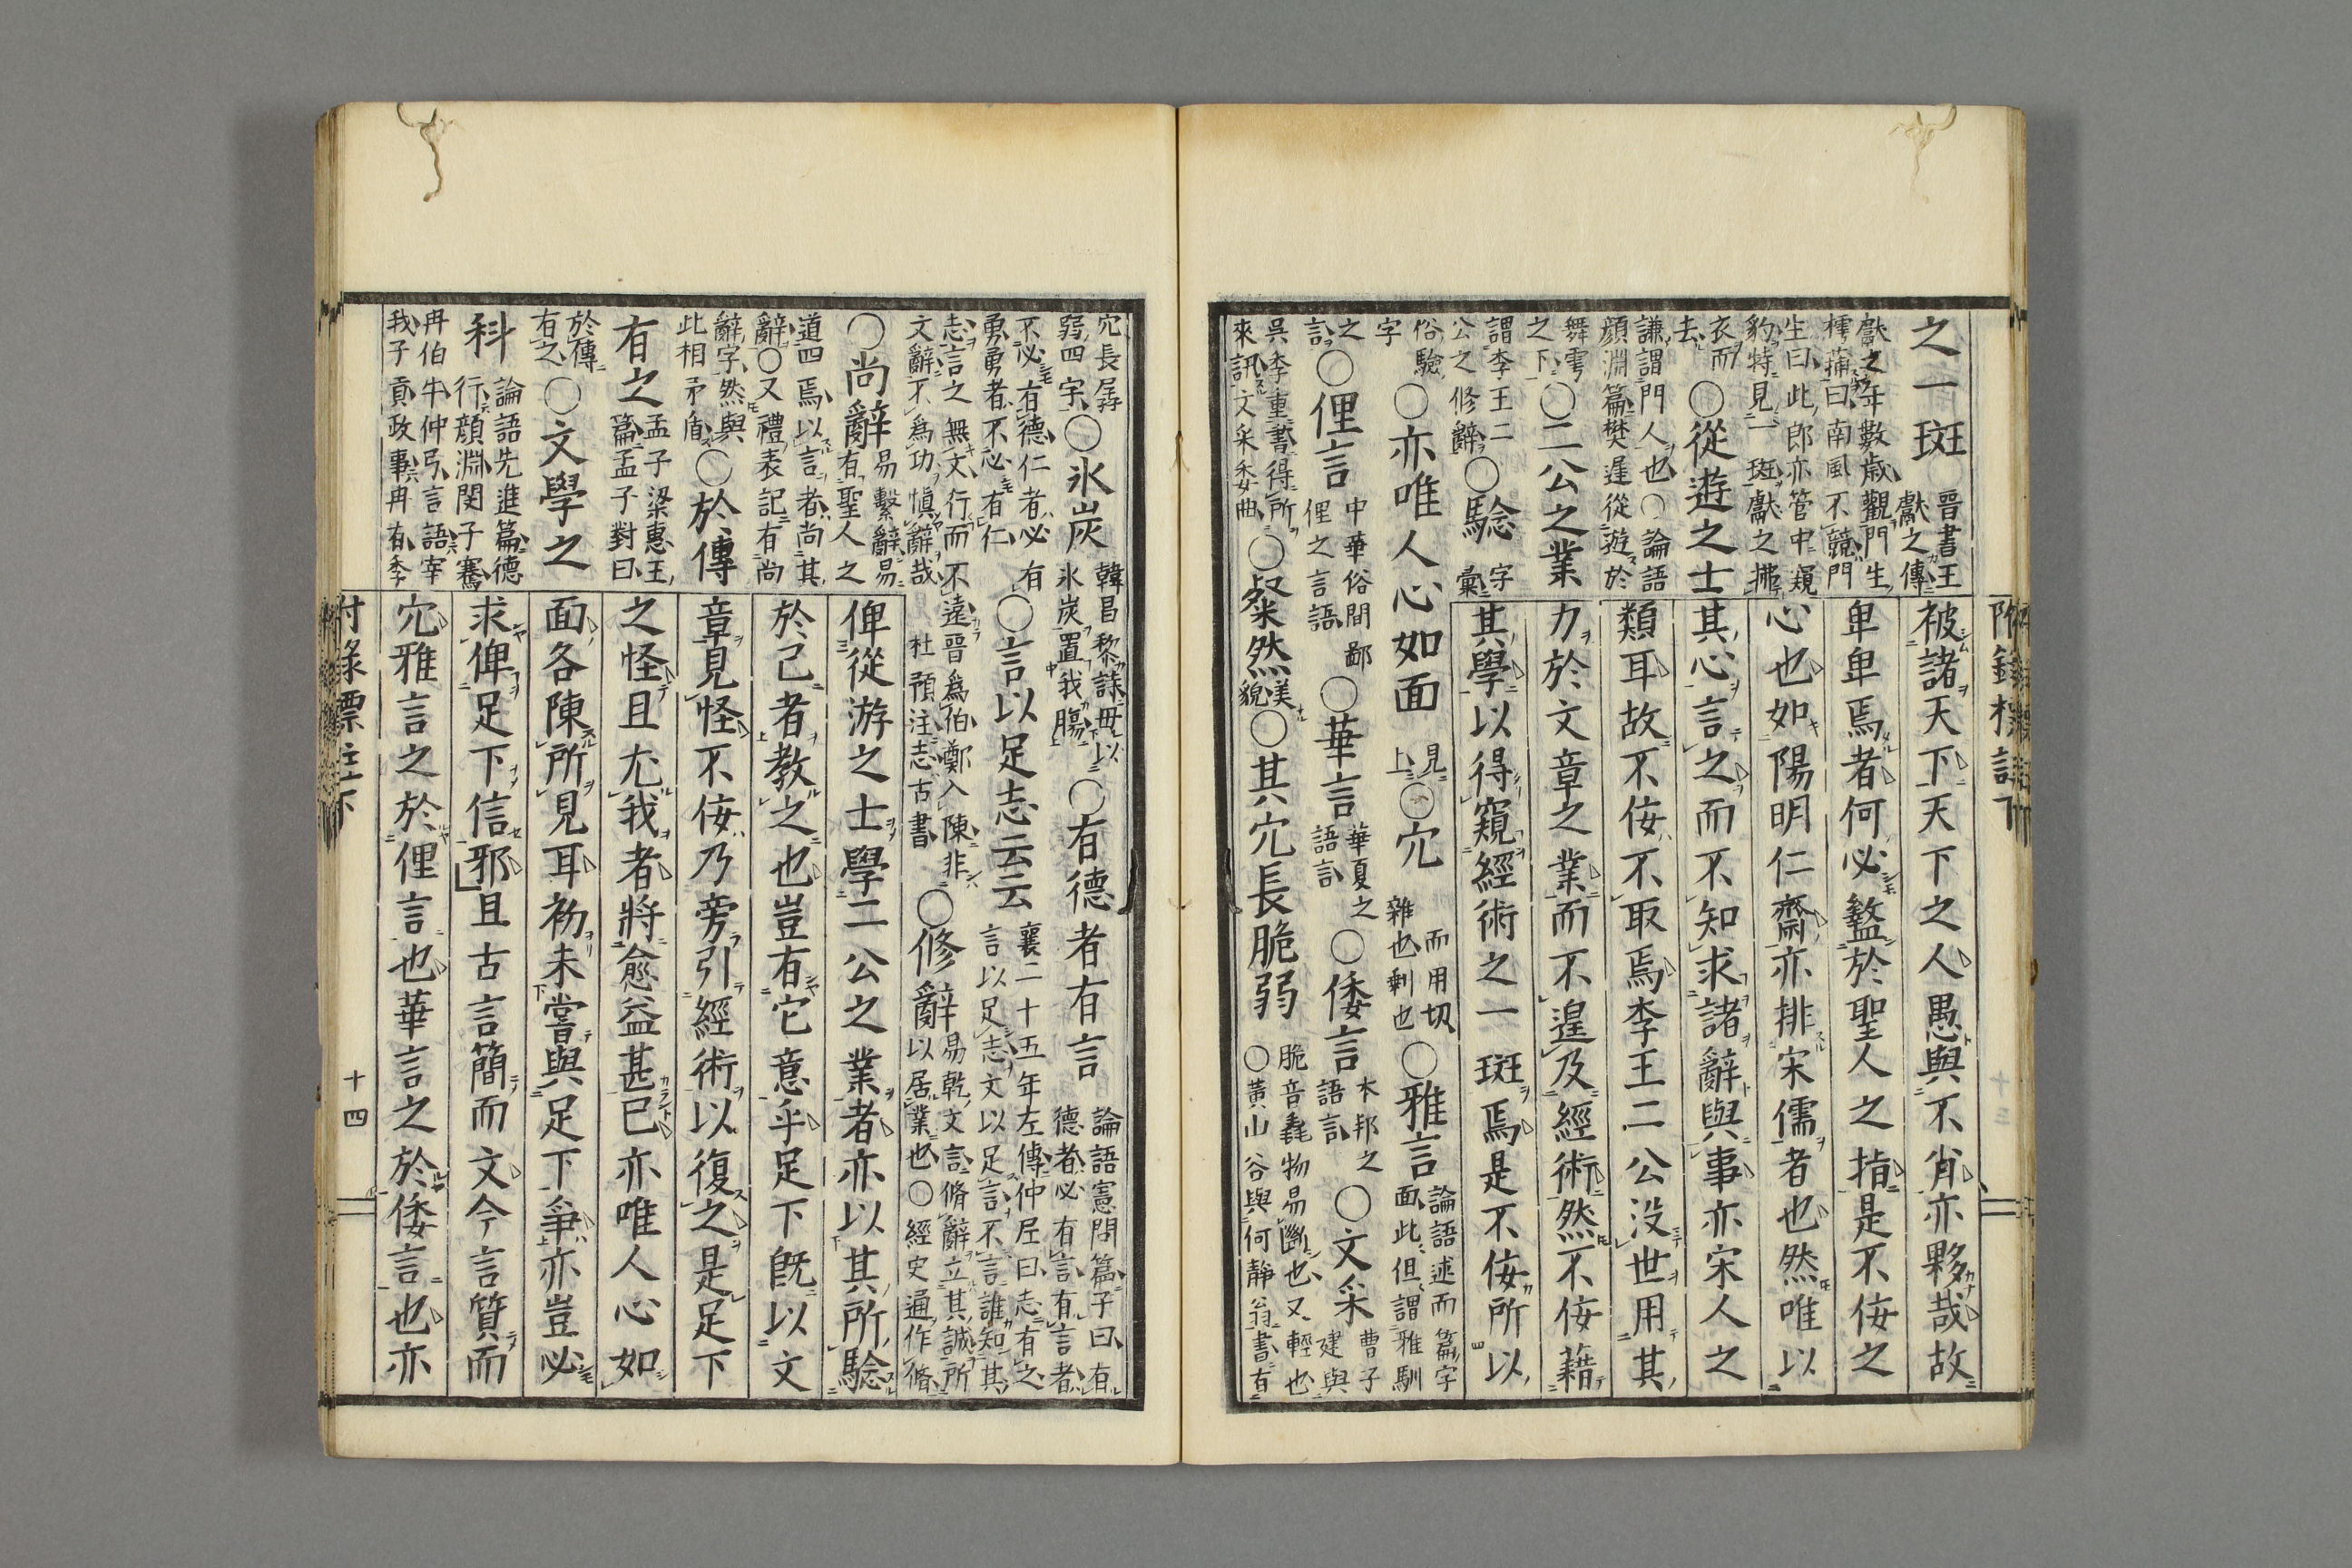 之一斑
晋書王
獻之傳
獻之年數歳觀門生
樗蒱曰南風不競門
生曰此郎亦管中窺
豹特見一斑獻之拂
衣而
去
○從遊之士
謙謂門人也○論語
顔淵篇樊遲從遊於
舞雩
之下
○二公之業
謂李王二
公之修辭
○騐
字
彙
俗驗
字
○亦唯人心如面
見
上
○宂
而用切
雜也剩也
○雅言
論語述而篇字
面此但謂雅馴
之
言
○俚言
中華俗間鄙
俚之言語
○華言
華夏之
語言
○倭言
本邦之
語言
○文采
曹子
建與
呉季重書得所
來訊文采委曲
○粲然
美
貌
○其宂長脆弱
脆音毳物易斷也又輕也
○黃山谷與何靜翁書有
被諸天下天下之人愚與不肖亦夥哉故
卑卑焉者何必盭於聖人之指是不佞之
心也如陽明仁齋亦排宋儒者也然唯以
其心言之而不知求諸辭與事亦宋人之
類耳故不佞不取焉李王二公没世用其
力於文章之業而不遑及經術然不佞藉
其學以得窺經術之一斑焉是不佞所以
宂長孱
弱四字
○氷炭
韓昌黎詩毋以
氷炭置我膓
○有德者有言
論語憲問篇子曰有
德者必有言有言者
不必有德仁者必有
勇勇者不必有仁
○言以足志云云
襄二十五年左傳仲尼曰志有之
言以足志文以足言不言誰知其
志言之無文行而不遠晉爲伯鄭入陳非
文辭不爲功愼辭哉
杜預注志古書
○修辭
易乾文言脩辭立其誠所
以居業也○經史通作脩
○尚辭
易繫辭易
有聖人之
道四焉以言者尚其
辭○又禮表記有尚
辭字然與
此相矛盾
○於傳
有之
孟子梁惠王
篇孟子對曰
於傳
有之
○文學之
科
論語先進篇德
行顔淵閔子騫
冉伯牛仲弓言語宰
我子貢政事冉有季
俾從游之士學二公之業者亦以其所騐
於己者教之也豈有它意乎足下既以文
章見怪不佞乃旁引經術以復之是足下
之怪且尤我者將愈益甚已亦唯人心如
面各陳所見耳初未嘗與足下爭亦豈必
求俾足下信邪且古言簡而文今言質而
宂雅言之於俚言也華言之於倭言也亦
付錄標註下
十四